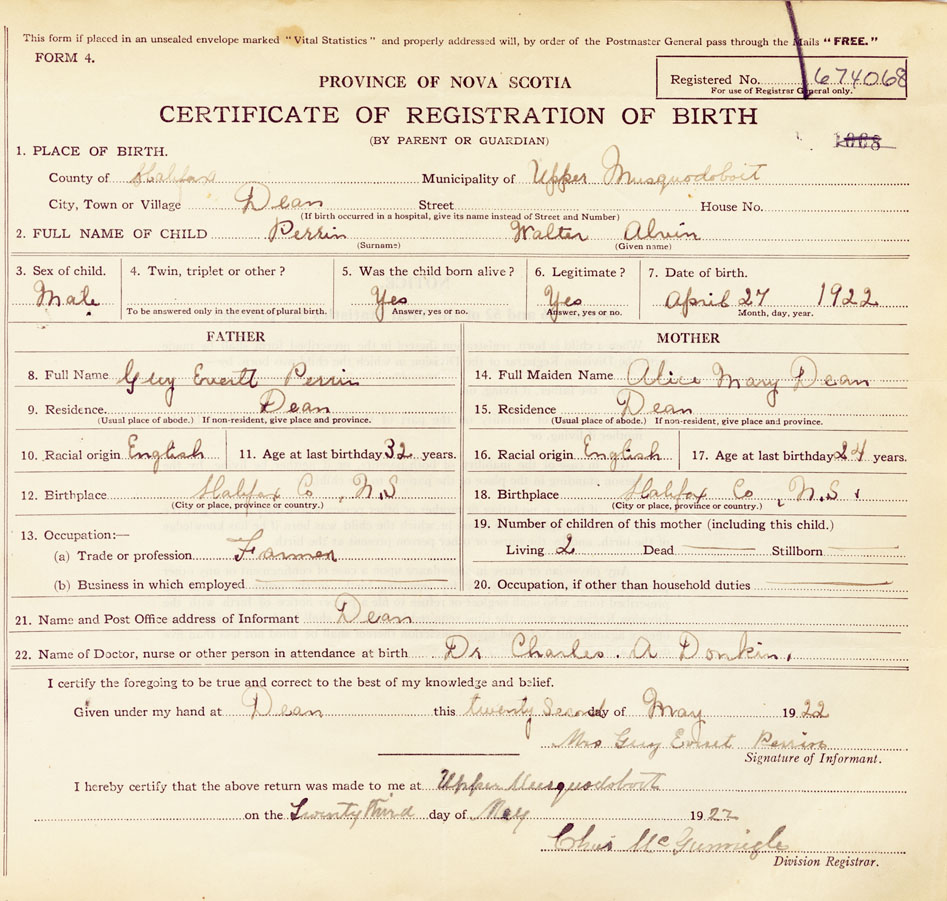 This form if placed in an unsealed envelope marked "Vital Statistics" and properly addressed will, by order of the Postmaster General pass through the Mails "FREE."
FORM 4.
PROVINCE OF NOVA SCOTIA
Registered No. 674068
For use of Registrar General only.
CERTIFICATE OF REGISTRATION OF BIRTH
(BY PARENT OR GUARDIAN)
1. PLACE OF BIRTH.
County of Halifax Municipality of Upper Musquodoboit
City, Town or Village Dean Street House No.
(If birth occurred in a hospital, give its name instead of Street and Number)
2. FULL NAME OF CHILD Perrin Walter Alvin
(Surname) (Given name)
3. Sex of child. 4. Twin, triplet or other? 5. Was the child born alive? 6. Legitimate? 7. Date of birth.
Male Yes Yes April 27 1922
To be answered only in the event of plural birth. Answer, yes or no. Answer, yes or no. Month, day, year.
FATHER MOTHER
8. Full Name Guy Everett Perrin 14. Full Maiden Name Alice Mary Dean
9. Residence Dean 15. Residence Dean
(Usual place of abode.) If non-resident, give place and province. (Usual place of abode.) If non-resident, give place and province.
10. Racial origin English 11. Age at last birthday 32 years. 16. Racial origin English 17. Age at last birthday 24 years.
12. Birthplace Halifax Co, N.S 18. Birthplace Halifax Co, N.S.
(City or place, province or country.) (City or place, province or country.)
13. Occupation:— 19. Number of children of this mother (including this child.)
(a) Trade or profession Farmer Living 2 Dead — Stillborn —
(b) Business in which employed — 20. Occupation, if other than household duties —
21. Name and Post Office address of Informant Dean
22. Name of Doctor, nurse or other person in attendance at birth Dr Charles. A Donkin.
I certify the foregoing to be true and correct to the best of my knowledge and belief.
Given under my hand at Dean this twenty Second day of May 1922
Mrs Guy Perrin
Signature of Informant.
I hereby certify that the above return was made to me at Upper Musquodoboit
on the Twenty third day of May 1922
Mc Gunnigle
Division Registrar.